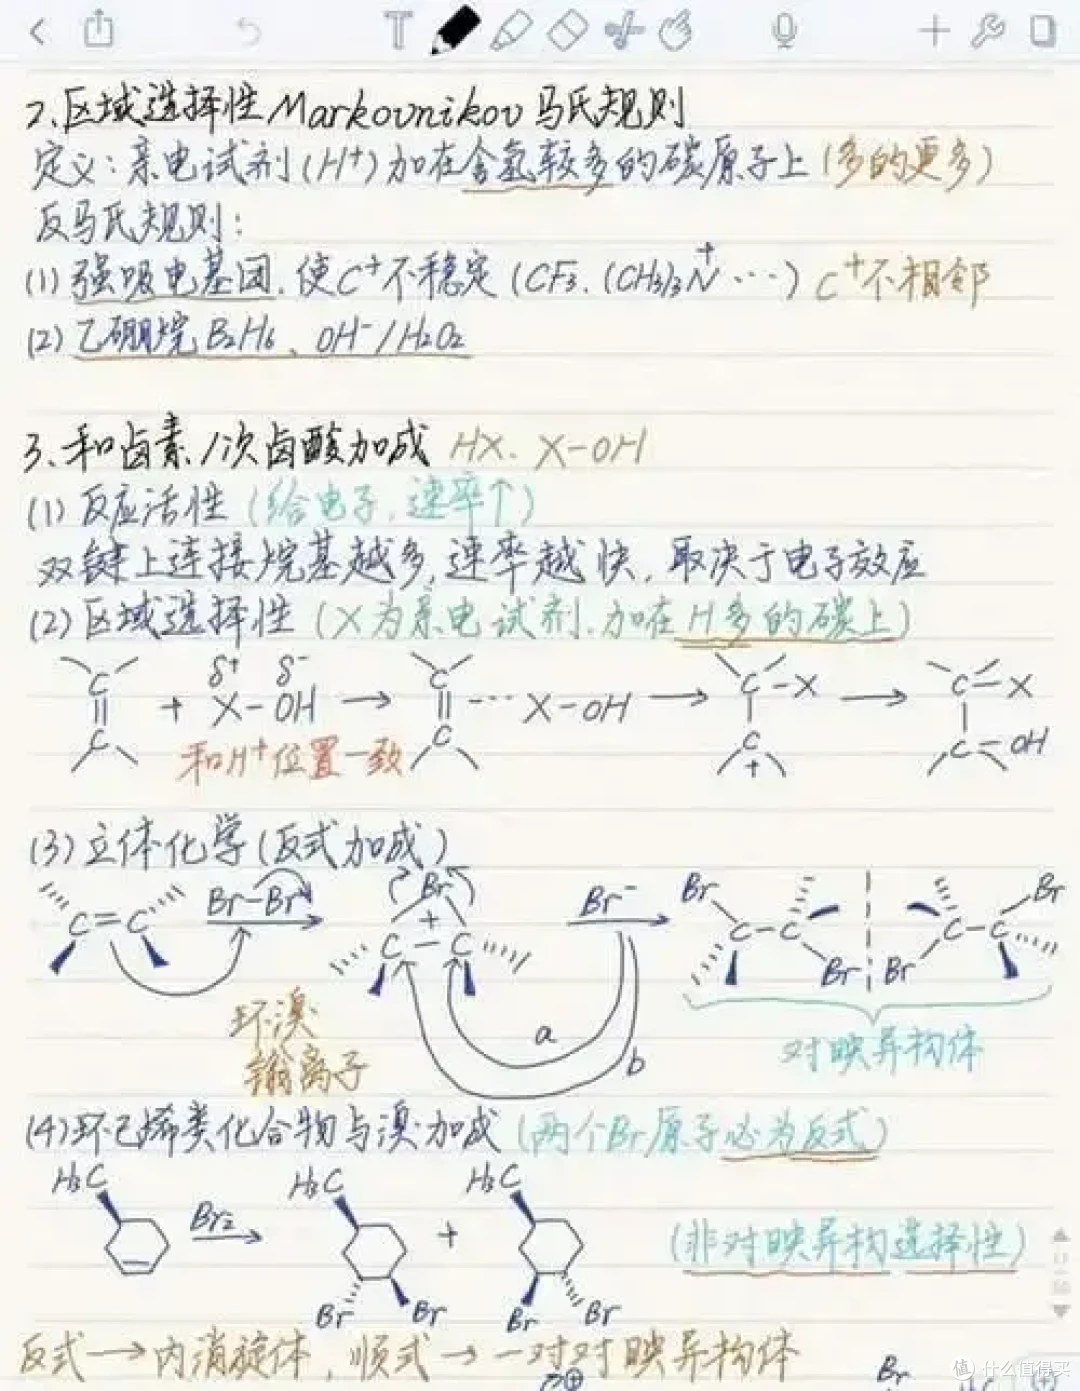 2.区域选择性 Markovnikov 马氏规则
定义:亲电试剂(H⁺)加在含氢较多的碳原子上(多的更多)
反马氏规则:
(1)强吸电基团.使C⁺不稳定(CF₃.(CH₃)₃N⁺…) C⁺不相邻
(2)乙硼烷B₂H₆、OH⁻/H₂O₂
3.和卤素/次卤酸加成 HX. X-OH
(1)反应活性(给电子,速率↑)
双键上连接烷基越多,速率越快,取决于电子效应
(2)区域选择性(X为亲电试剂.加在H多的碳上)
δ⁺ δ⁻
C C C-X C-X
+ X-OH → … X-OH → →
C C C C-OH
+
和H⁺位置一致
(3)立体化学(反式加成)
Br-Br Br Br⁻ Br Br
C=C + C-C C-C
C-C Br Br
环溴
鎓离子
a
b
对映异构体
(4)环己烯类化合物与溴加成(两个Br原子必为反式)
H₃C H₃C H₃C
Br₂ + (非对映异构选择性)
Br Br Br Br
反式→内消旋体,顺式→一对对映异构体
Br
值 什么值得买